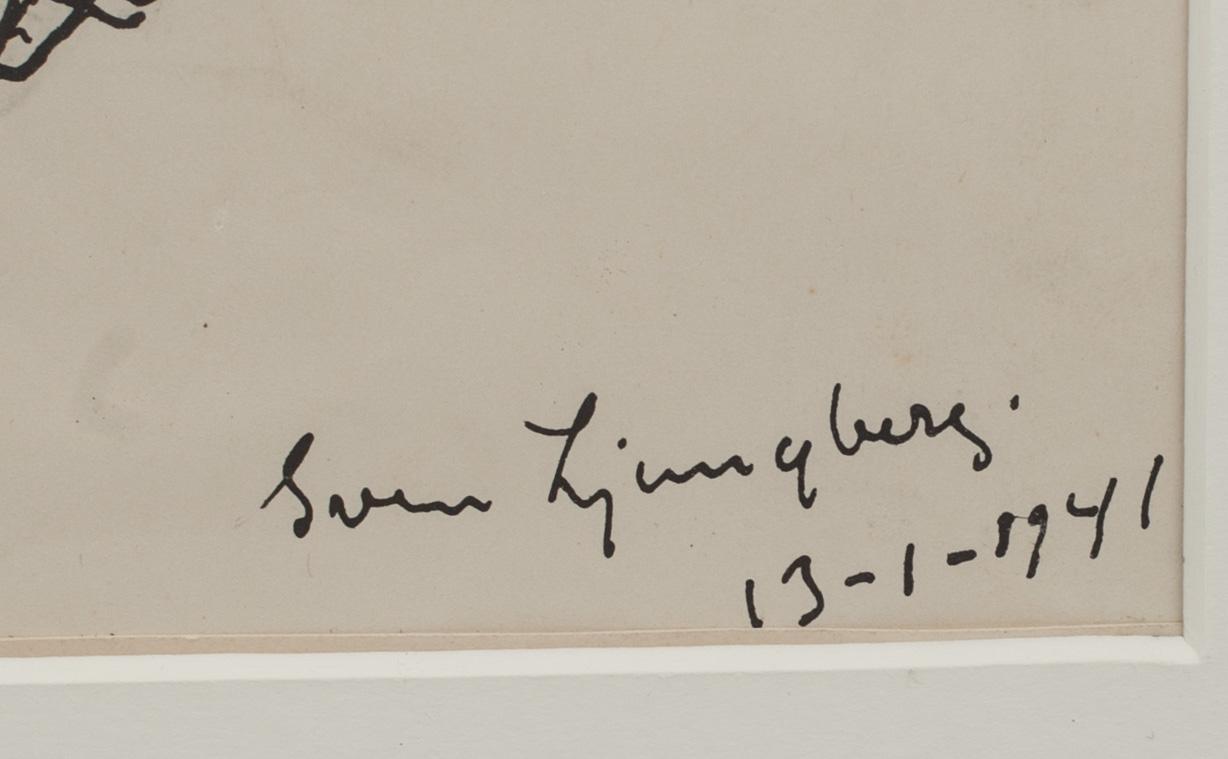 Sven Ljungberg.
13-1-1941